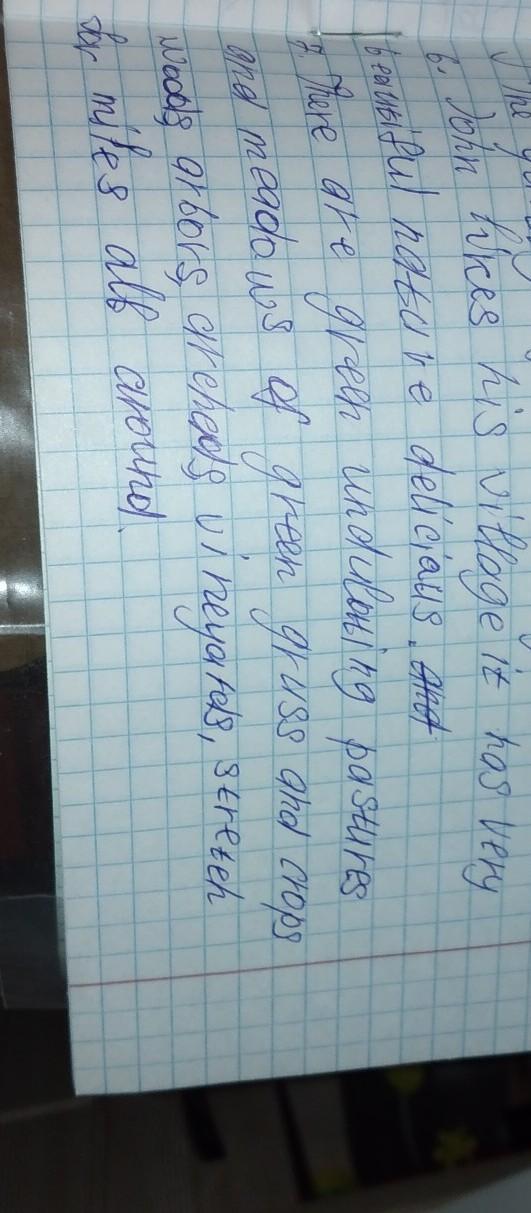 The
6. John likes his village it has very
beautiful nature delicious. and
7. There are green undulating pastures
and meadows of green gruss and crops
woods arbors orchads vineyards, stretch
for miles all around.